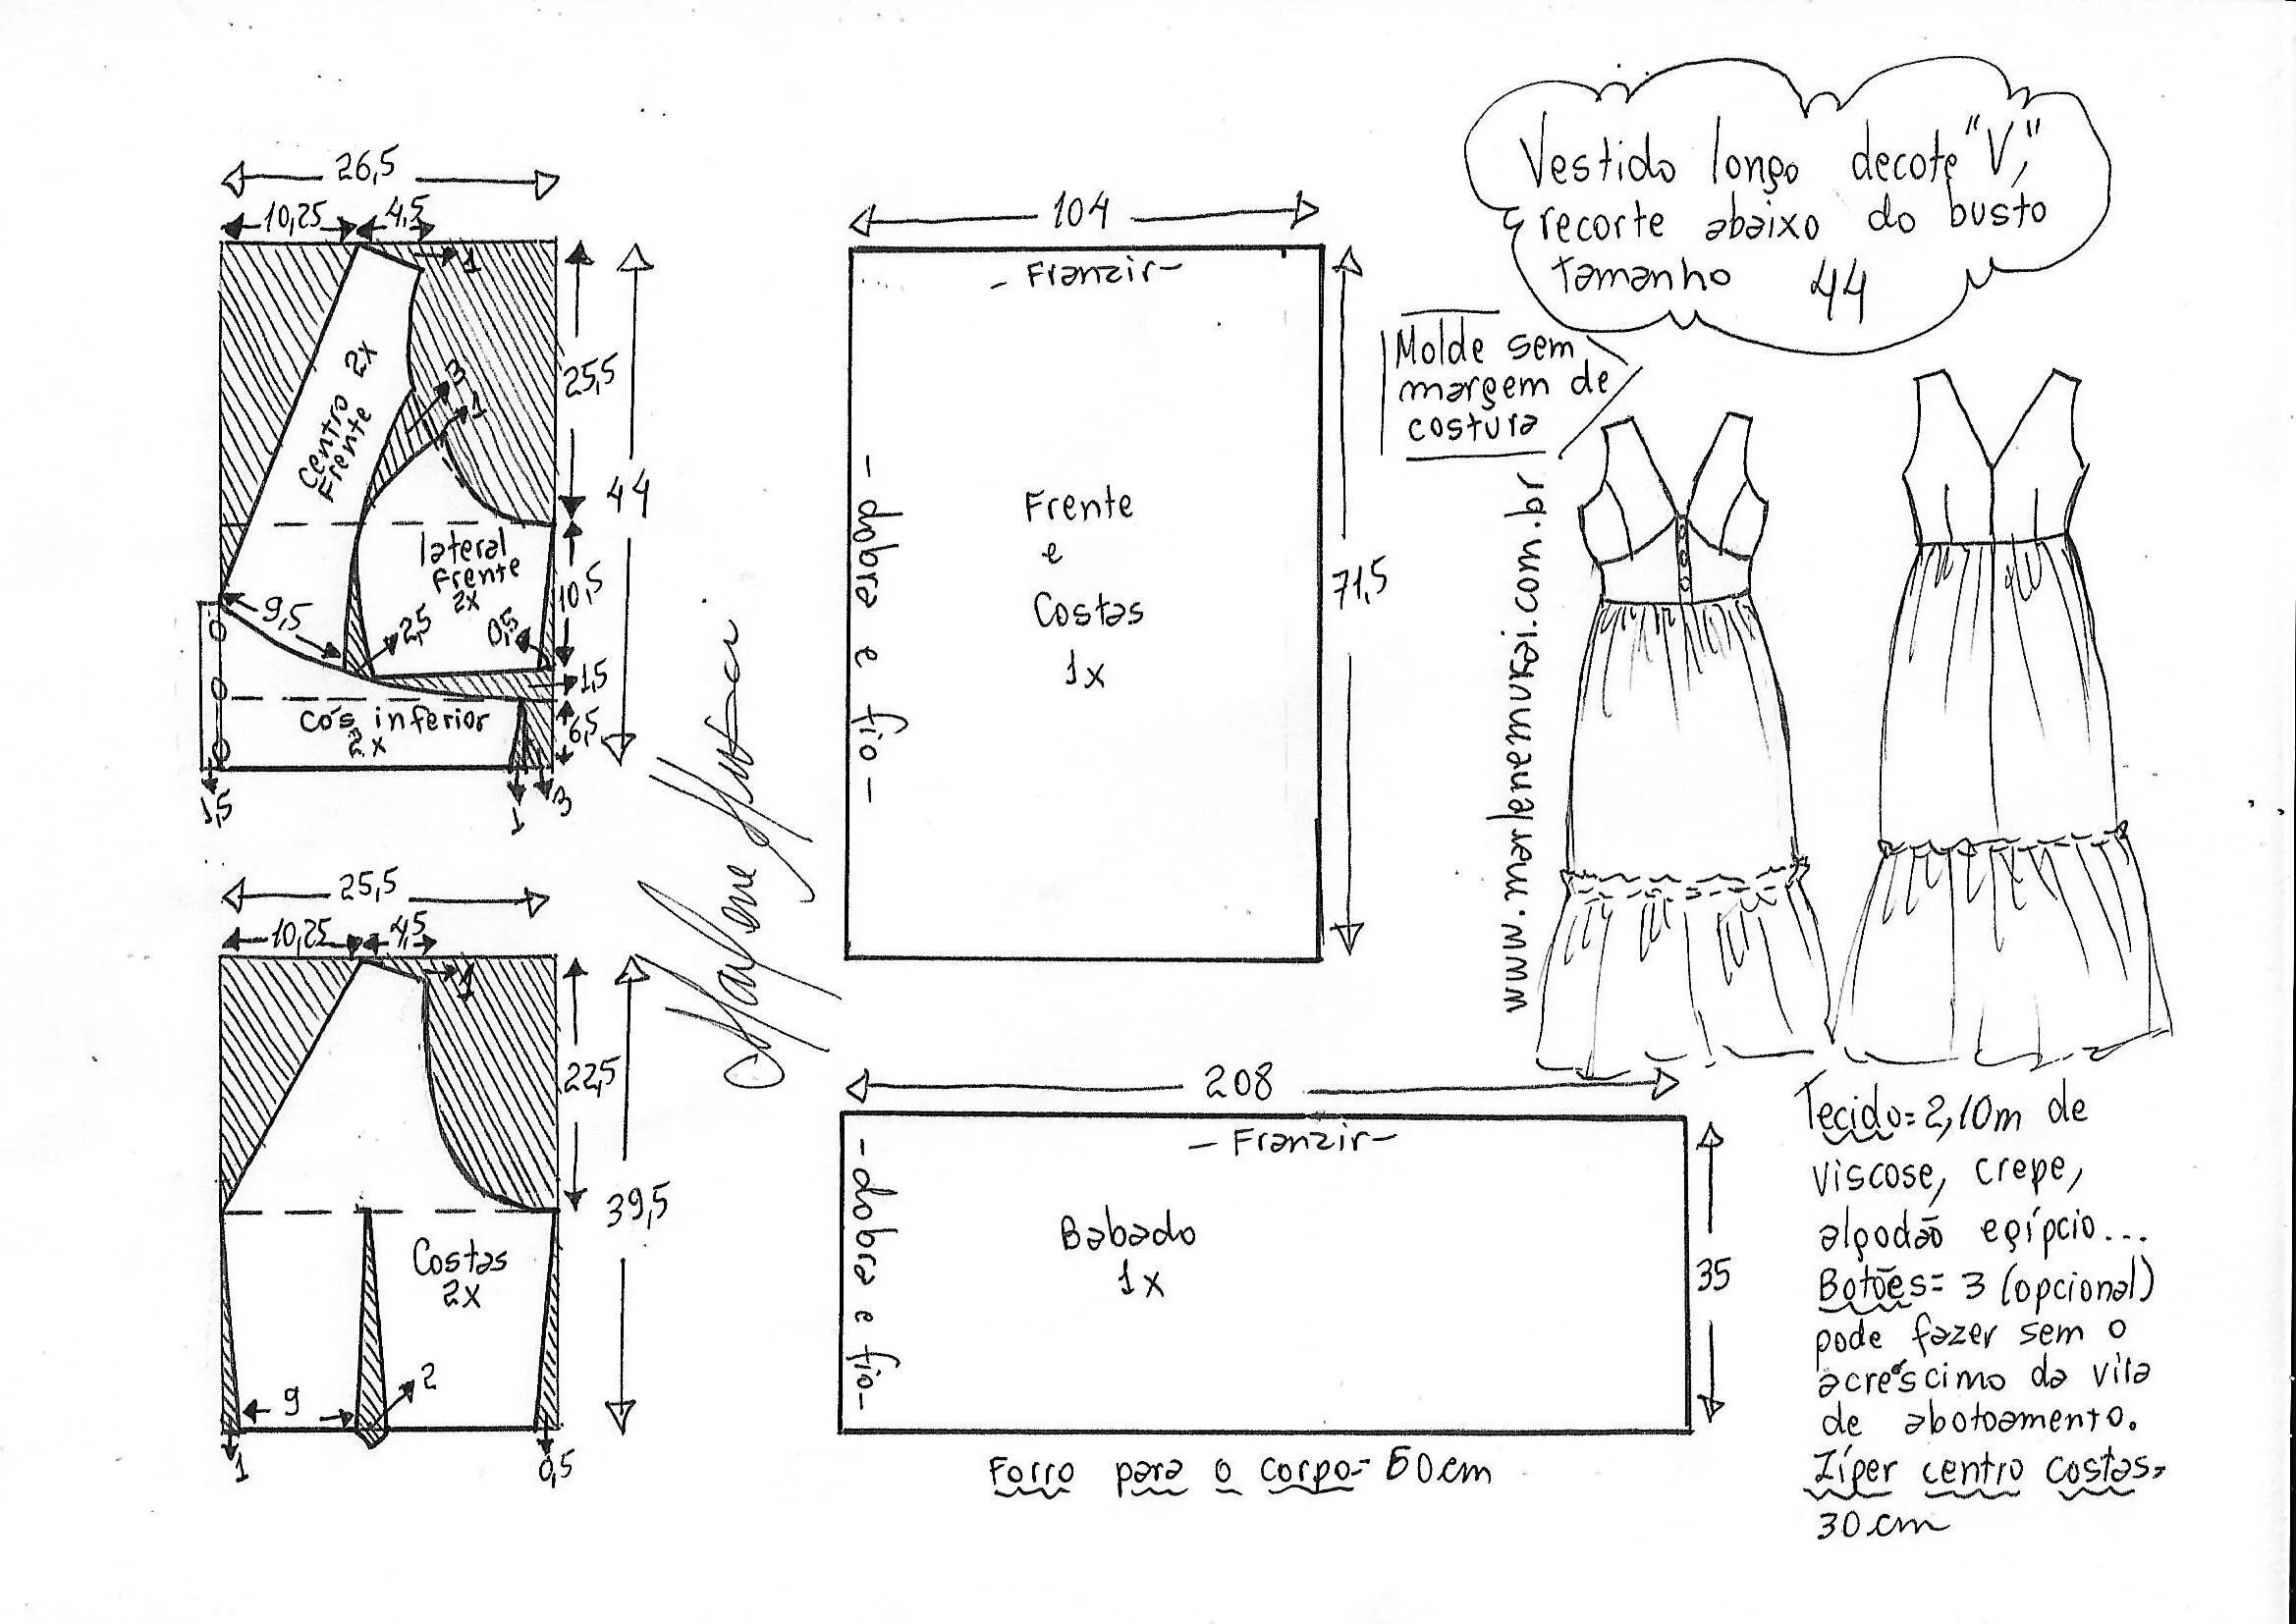 Vestido longo decote "V",
recorte abaixo do busto
tamanho 44
Molde sem
margem de
costura
www.marlenemukai.com.br
26,5
10,25
4,5
1
Centro
Frente
2x
3
1
25,5
44
lateral
Frente
2x
10,5
9,5
2,5
0,5
1,5
cós inferior
2x
6,5
1,5
1
3
25,5
10,25
4,5
1
22,5
39,5
Costas
2x
9
2
1
0,5
Marlene Mukai
104
- Franzir -
- dobra e fio -
Frente
e
Costas
1x
71,5
208
- Franzir -
- dobra e fio -
Babado
1x
35
Forro para o corpo= 60cm
Tecido= 2,10m de
viscose, crepe,
algodão egípcio...
Botões= 3 (opcional)
pode fazer sem o
acréscimo da vila
de abotoamento.
Zíper centro costas=
30cm